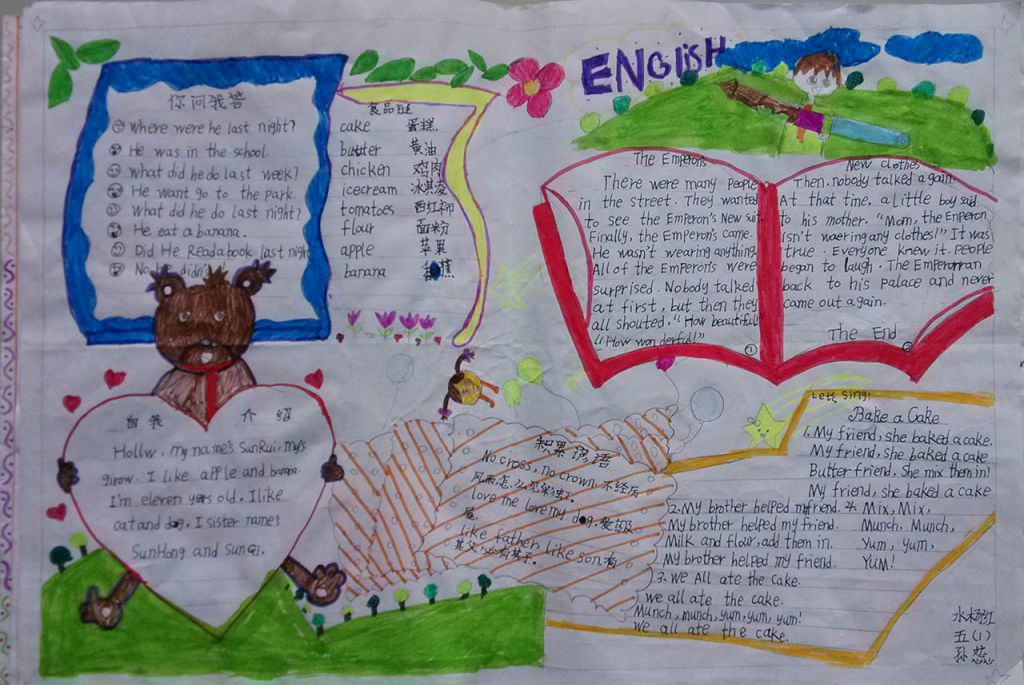 ENGLISH
你问我答
Where were he last night?
He was in the school.
what did he do last week?
He want go to the park.
What did he do last night?
He eat a banana.
Did He Read a book last night
No he didn
食品
cake 蛋糕
butter 黄油
chicken 鸡肉
icecream 冰淇凌
tomatoes 西红柿
flour 面粉
apple 苹果
banana 蕉
The Emperors
There were many people
in the street. They wanted
to see the Emperon's New suit.
Finally, the Emperon's came.
He wasn't wearing anything.
All of the Emperon's were
surprised. Nobody talked
at first, but then they
all shouted, "How beautiful!
"How won derful!"
①
New clothes
Then, nobody talked again.
At that tine, a little boy said
to his mother. "Mom, the Enperon
isn't waering any clothes!" It was
true. Everyone knew it. People
began to laugh. The Emperon ran
back to his palace and never
came out again.
The End
②
自我 介绍
Hollw, my name's SunRui, my's
girow. I like apple and banna.
I'm eleven yers old, I like
cat and dog. I sister names
SunHong and sunQi.
积累 俗语
No cross, no crown. 不经历
风雨,怎么见彩虹。
love me love my dog. 爱屋及
屋.
Like father, like son. 有
其父,必有其子。
Let's sing!
Bake a Cake
1. My friend, she baked a cake.
My friend, she baked a cake.
Butter friend, She mix them in!
My friend, she baked a cake
2. My brother helped my friend.
My brother helped my friend.
Milk and flour, add them in.
My brother helped my friend.
3. we All ate the cake.
we all ate the cake.
Munch, munch, yum, yum, yum!
we all ate the cake.
Mix, Mix,
Munch, Munch,
Yum, yum,
YUM!
五(1)
孙